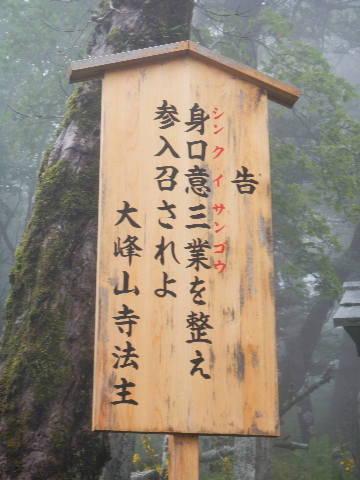 告
シンクイサンゴウ
身口意三業を整え
参入召されよ
大峰山寺法主